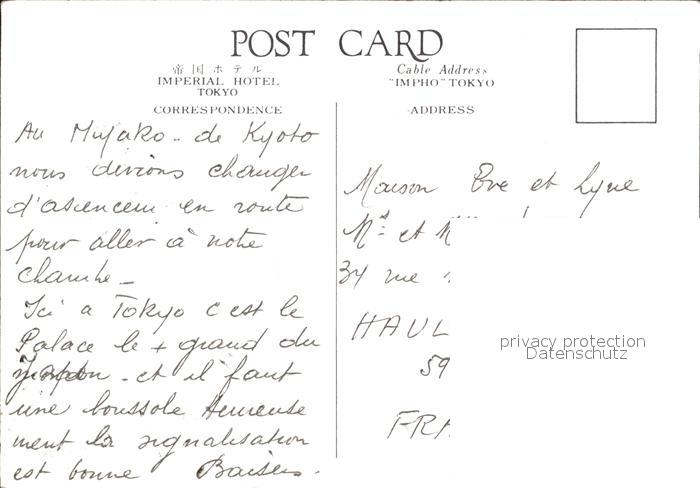 POST CARD
帝国ホテル
IMPERIAL HOTEL
TOKYO
Cable Address
"IMPHO" TOKYO
CORRESPONDENCE
ADDRESS
Au Miyako - de Kyoto
nous devions changer
d'ascenceur en route
pour aller à notre
chambre -
Ici a Tokyo c'est le
Palace le + grand du
Japon - et il faut
une boussole Heureuse
ment la signalisation
est bonne Baisers -
Maison Eve et Lyne
et M
34 rue
HAUL
59
FRA
privacy protection
Datenschutz